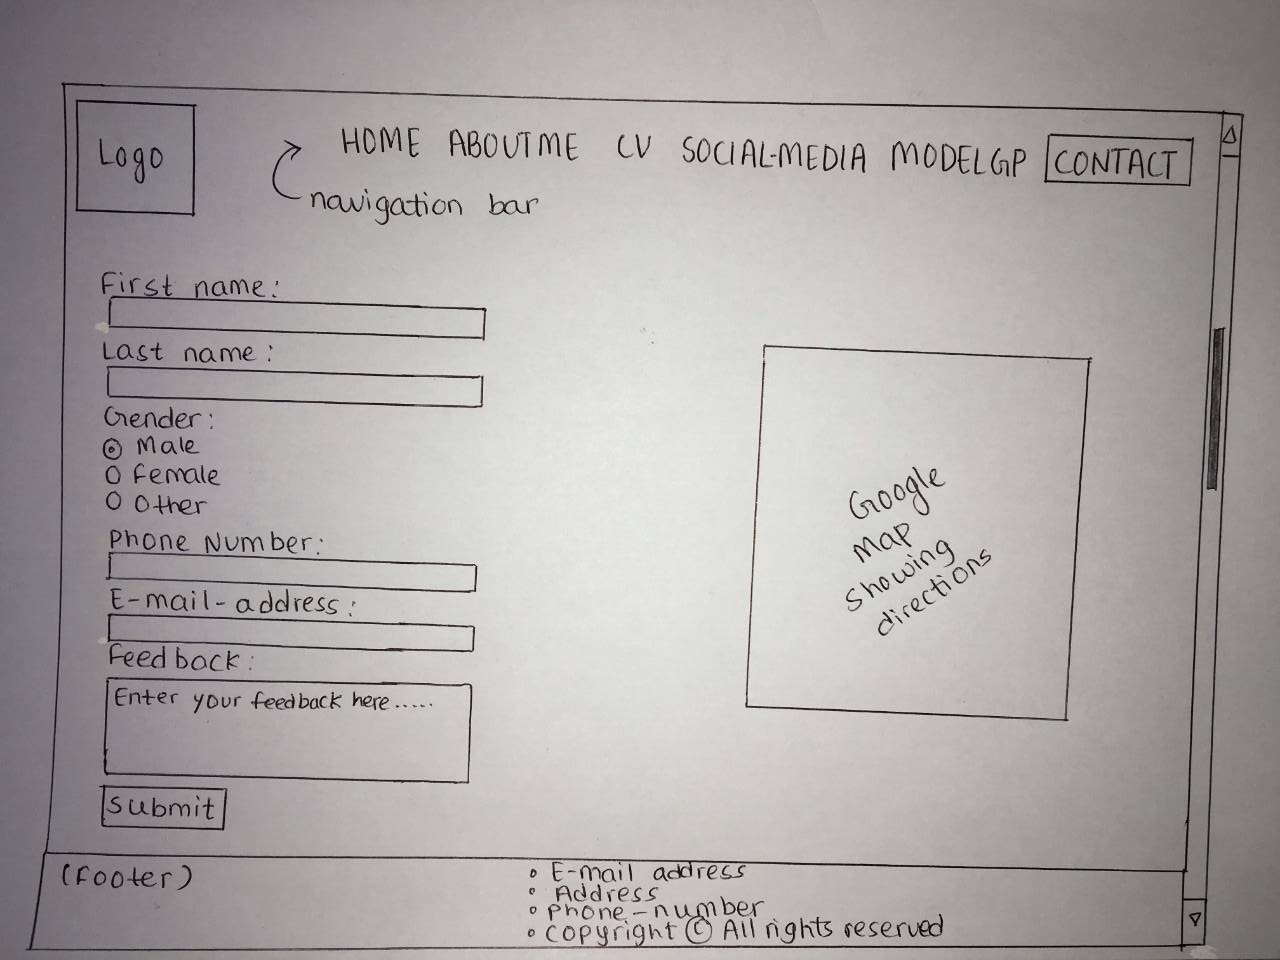 Logo
HOME ABOUTME CV SOCIAL-MEDIA MODELGP CONTACT
navigation bar
First name:
Last name:
Gender:
Male
Female
Other
Phone Number:
E-mail-address:
Feedback:
Enter your feedback here......
Submit
Google
Map
Showing
directions
(Footer)
• E-mail address
• Address
• Phone-number
• Copyright © All rights reserved